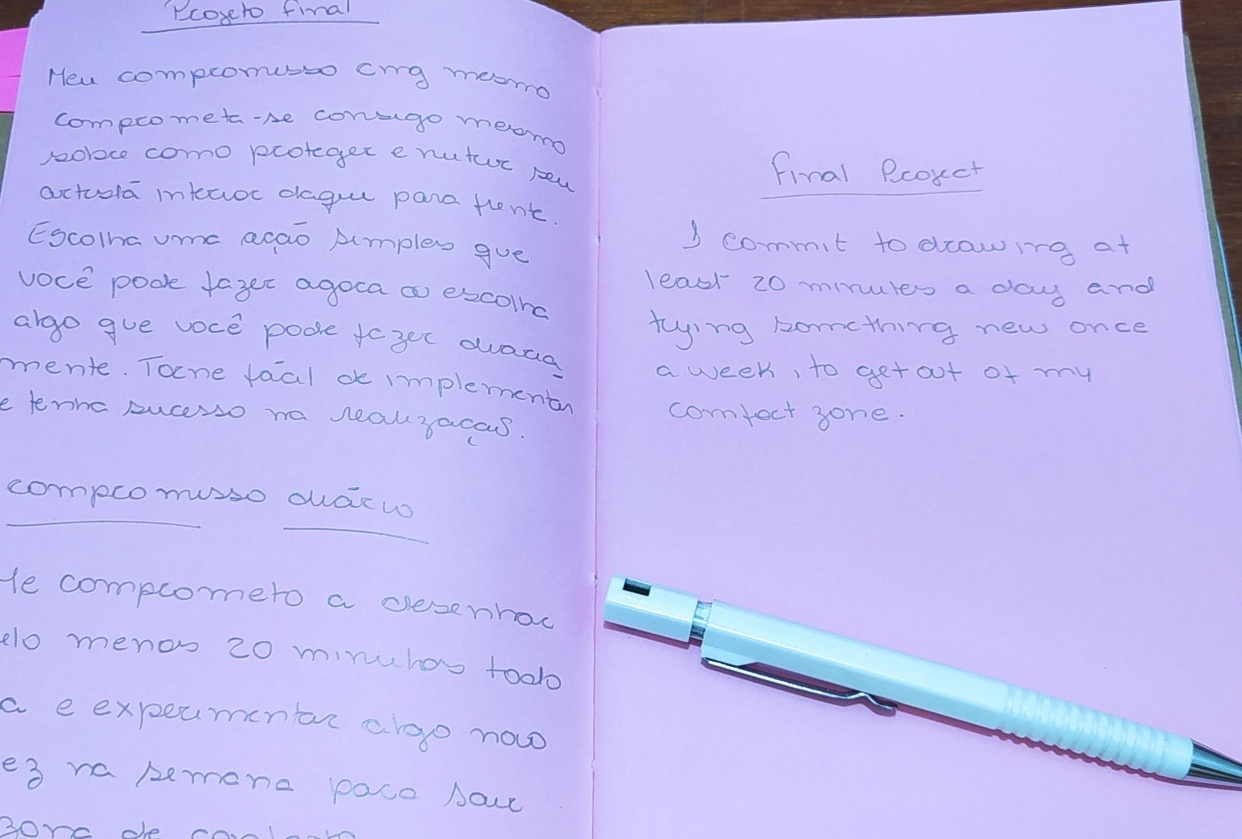 Projeto final
Meu compromisso cmg mesmo
comprometa-se consigo mesmo
sobre como proteger e nutrir seu
artista interior daqui para frente.
Escolha uma ação simples que
você pode fazer agora ou escolha
algo que você pode fazer diaria
mente. Torne fácil de implementar
e tenha sucesso na realização.
compromisso diário
Me comprometo a desenhar
elo menos 20 minutos todo
a e experimentar algo novo
ez na semana para sair
zona de conforto
Final Project
I commit to drawing at
least 20 minutes a day and
trying something new once
a week, to get out of my
comfort zone.